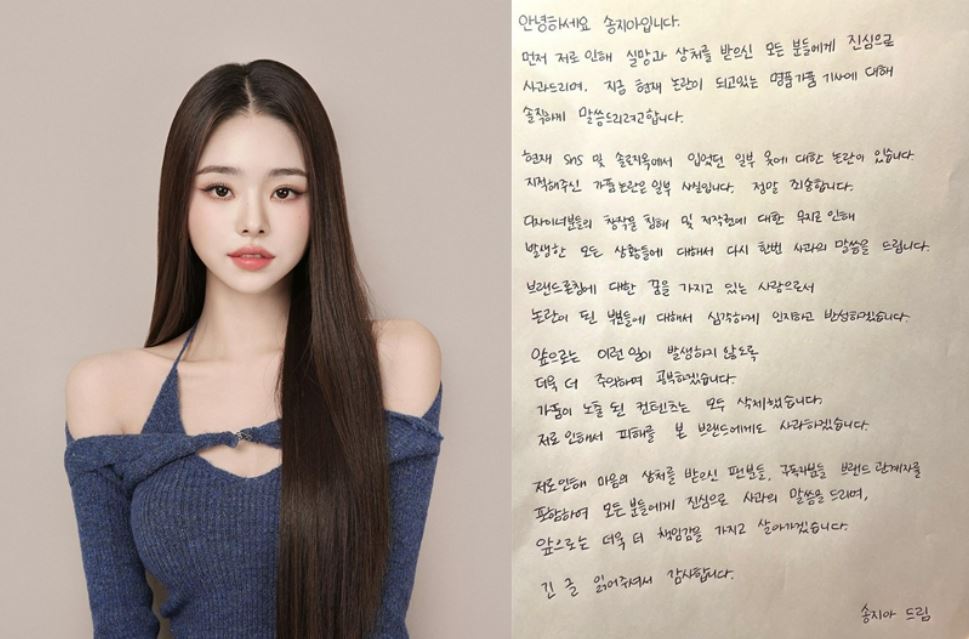 안녕하세요 송지아입니다.
먼저 저로 인해 실망과 상처를 받으신 모든 분들에게 진심으로
사과드리며, 지금 현재 논란이 되고있는 명품가품 기사에 대해
솔직하게 말씀드리려고합니다.
현재 sns 및 솔로지옥에서 입었던 일부 옷에 대한 논란이 있습니다.
지적해주신 가품논란은 일부 사실입니다. 정말 죄송합니다.
디자이너분들의 창작물 침해 및 저작권에 대한 무지로 인해
발생한 모든 상황들에 대해서 다시 한번 사과의 말씀을 드립니다.
브랜드론칭에 대한 꿈을 가지고 있는 사람으로서
논란이 된 부분들에 대해서 심각하게 인지하고 반성하겠습니다.
앞으로는 이런일이 발생하지 않도록
더욱 더 주의하며 공부하겠습니다.
가품이 노출 된 컨텐츠는 모두 삭제했습니다.
저로 인해서 피해를 본 브랜드에게도 사과하겠습니다.
저로인해 마음의 상처를 받으신 팬분들, 구독자님들 브랜드 관계자를
포함하여 모든분들에게 진심으로 사과의 말씀을 드리며,
앞으로는 더욱 더 책임감을 가지고 살아가겠습니다.
긴 글 읽어주셔서 감사합니다.
송지아 드림